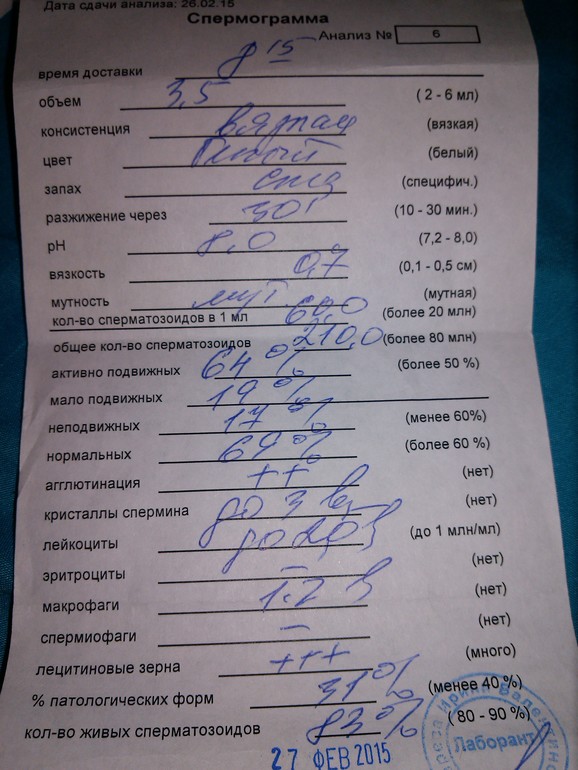 Дата сдачи анализа: 26.02.15
Спермограмма
Анализ № 6
время доставки 8 15
объем 3,5 ( 2 - 6 мл)
консистенция вязкая (вязкая)
цвет белый (белый)
запах спец (специфич.)
разжижение через 30' (10 - 30 мин.)
рН 8,0 (7,2 - 8,0)
вязкость 0,7 (0,1 - 0,5 см)
мутность мут (мутная)
кол-во сперматозоидов в 1 мл 60,0 (более 20 млн)
общее кол-во сперматозоидов 210,0 (более 80 млн)
активно подвижных 64% (более 50 %)
мало подвижных 19%
неподвижных 17% (менее 60%)
нормальных 69% (более 60 %)
агглютинация ++ (нет)
кристаллы спермина до 3 (нет)
лейкоциты до 20 (до 1 млн/мл)
эритроциты – (нет)
макрофаги 1-2 (нет)
спермиофаги – (нет)
лецитиновые зерна +++ (много)
% патологических форм 31% (менее 40 %)
кол-во живых сперматозоидов 83% ( 80 - 90 %)
27 ФЕВ 2015
Лаборант